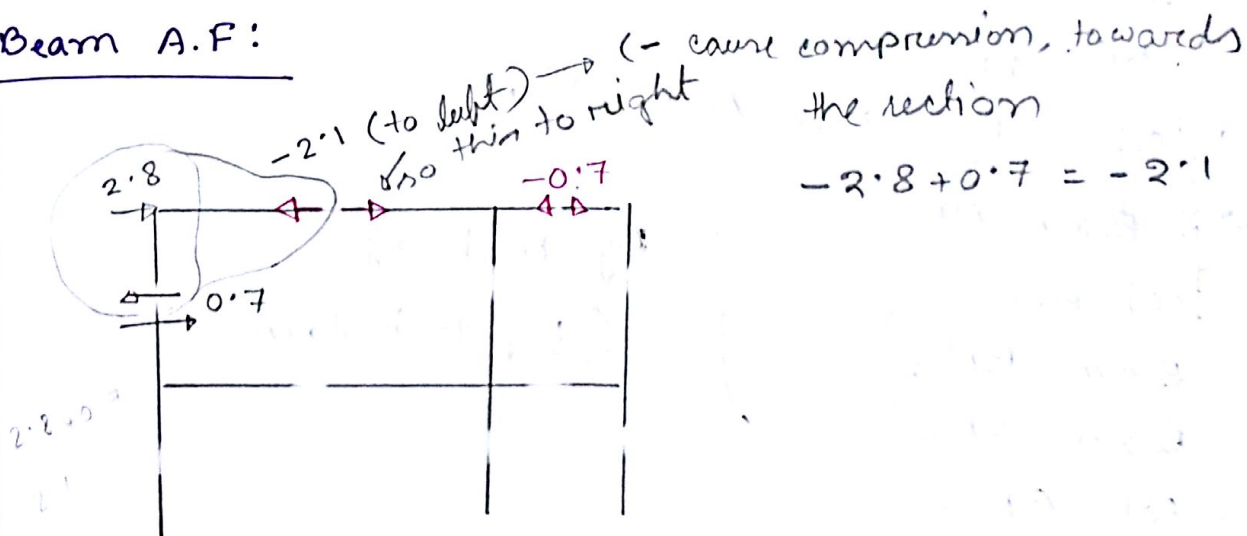 Beam A.F:
-2.1 (to left) → (- cause compression, towards
the section
so this to right
2.8
-0.7
-2.8 + 0.7 = -2.1
0.7